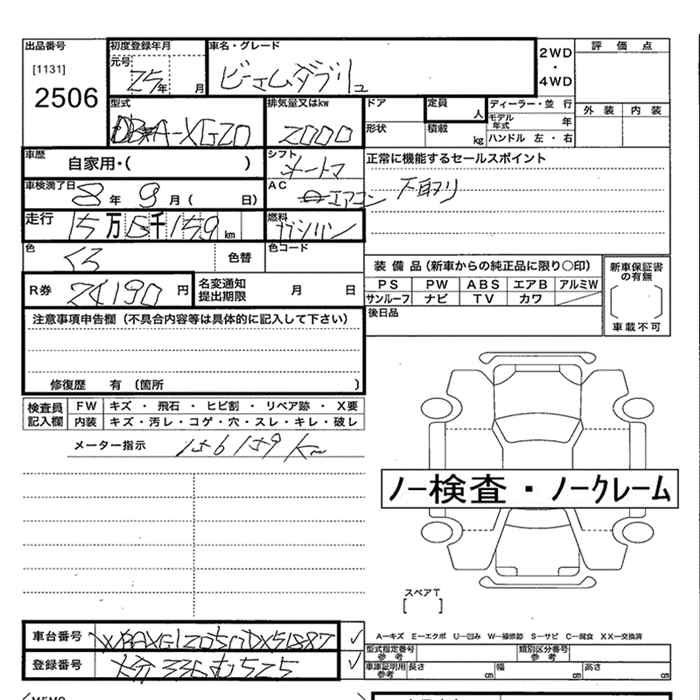 出品番号
[1131]
2506
初度登録年月
元号 25年 月
車名・グレード
ビーエムダブリュ
2WD
・
4WD
評価点
外装 内装
型式
DBA-XG20
排気量又はkw
2000
ドア
定員
人
形状
積載
kg
ディーラー・並行
モデル年式 年
ハンドル 左・右
車歴
自家用・( )
シフト
オートマ
正常に機能するセールスポイント
下取り
車検満了日
8年 9月( 日)
AC
エアコン
走行
15万6千159km
燃料
ガソリン
色
くろ
色替
色コード
R券
24190円
名変通知
提出期限
月 日
装備品(新車からの純正品に限り○印)
PS PW ABS エアB アルミW
サンルーフ ナビ TV カワ
後日品
新車保証書
の有無
車載不可
注意事項申告欄(不具合内容等は具体的に記入して下さい)
修復歴 有 (箇所 )
検査員
記入欄
FW キズ・飛石・ヒビ割・リペア跡・X要
内装 キズ・汚レ・コゲ・穴・スレ・キレ・破レ
メーター指示 156159km
ノー検査・ノークレーム
スペアT
[ ]
A-キズ E-エクボ U-凹み W-補修跡 S-サビ C-腐食 XX-交換済
車台番号
登録番号
型式指定番号
参考
類別区分番号
参考
車庫証明用
参考
長さ cm 幅 cm 高さ cm
MEMO